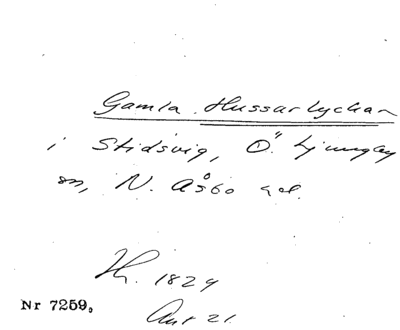 Gamla Hussarlyckan
i Stidsvig, Ö. Ljungby
sn, N. Åsbo hd.
Th. 1829
Ant 21.
Nr 7259.